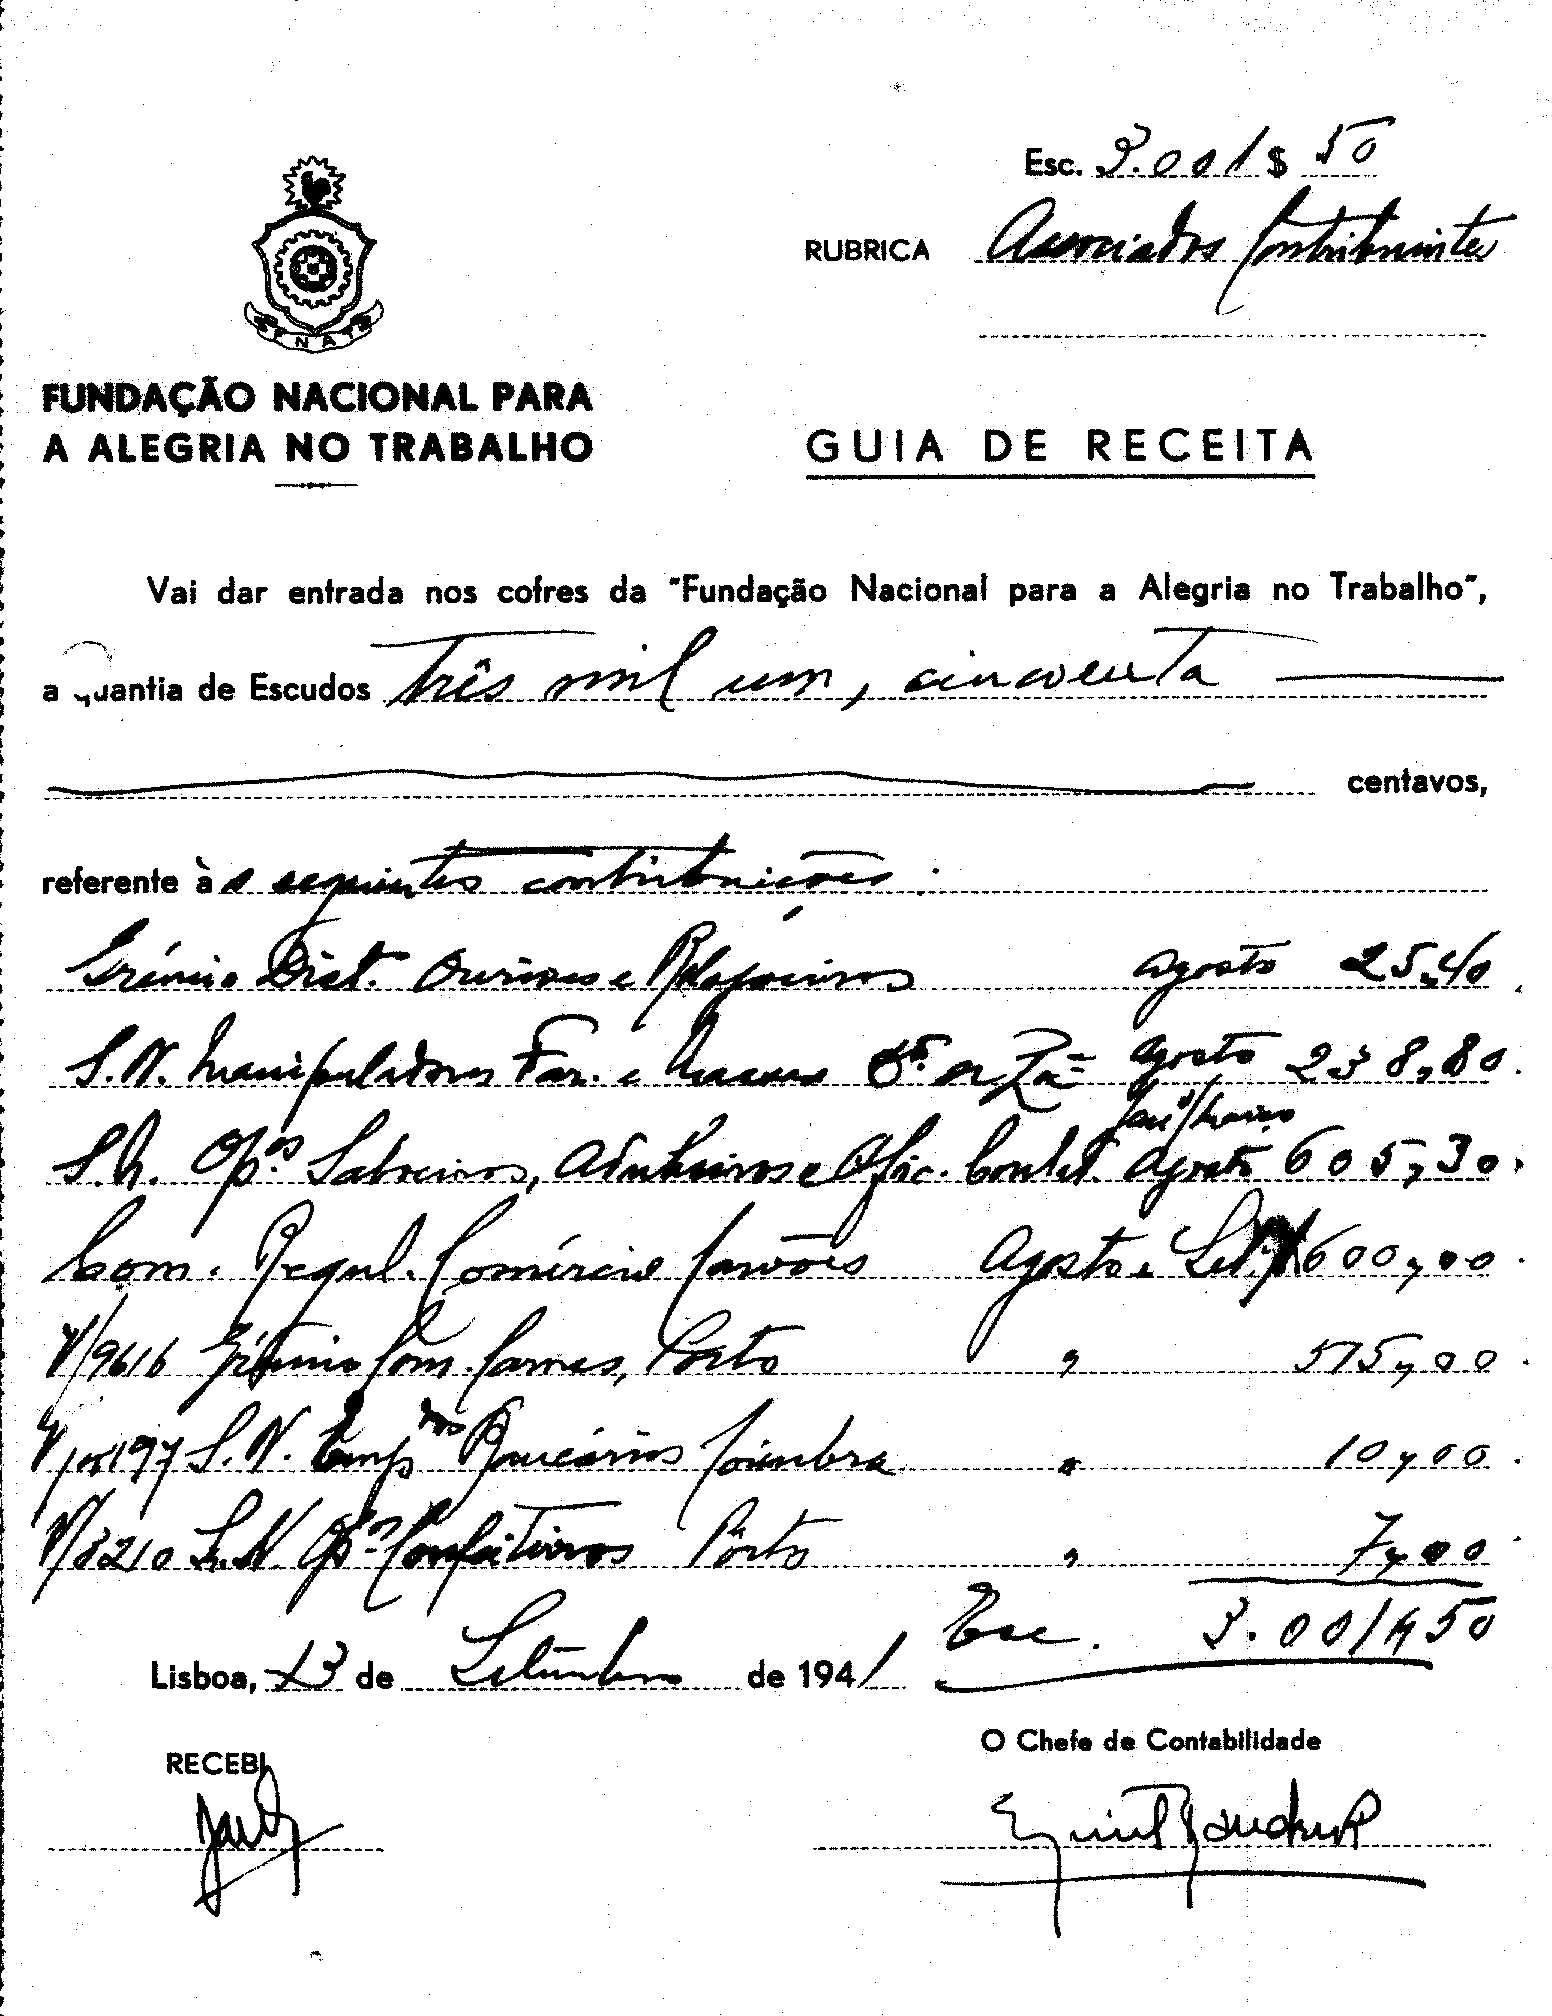 Esc. 3.001 $ 50
RUBRICA Associados Contribuintes
F N A T
FUNDAÇÃO NACIONAL PARA
A ALEGRIA NO TRABALHO
GUIA DE RECEITA
Vai dar entrada nos cofres da "Fundação Nacional para a Alegria no Trabalho",
a quantia de Escudos três mil um, cincoenta
centavos,
referente às seguintes contribuições:
Grémio Dist. Ourives e Relojoeiros Agosto 25,40
S.N. Manipuladores Far. e Agosto 238,80
S.N. Op.os Agosto 605,30
Com. Regul. Comércio Carvões Agosto e Set. 600,00
9616 Grémio Com. Carnes, Porto " 575,00
S.N. Emp.dos Bancários Coimbra " 10,00
8210 S.N. Op.os Confeiteiros Porto " 7,00
Esc. 3.001$50
Lisboa, 13 de Setembro de 1941
O Chefe de Contabilidade
RECEBI